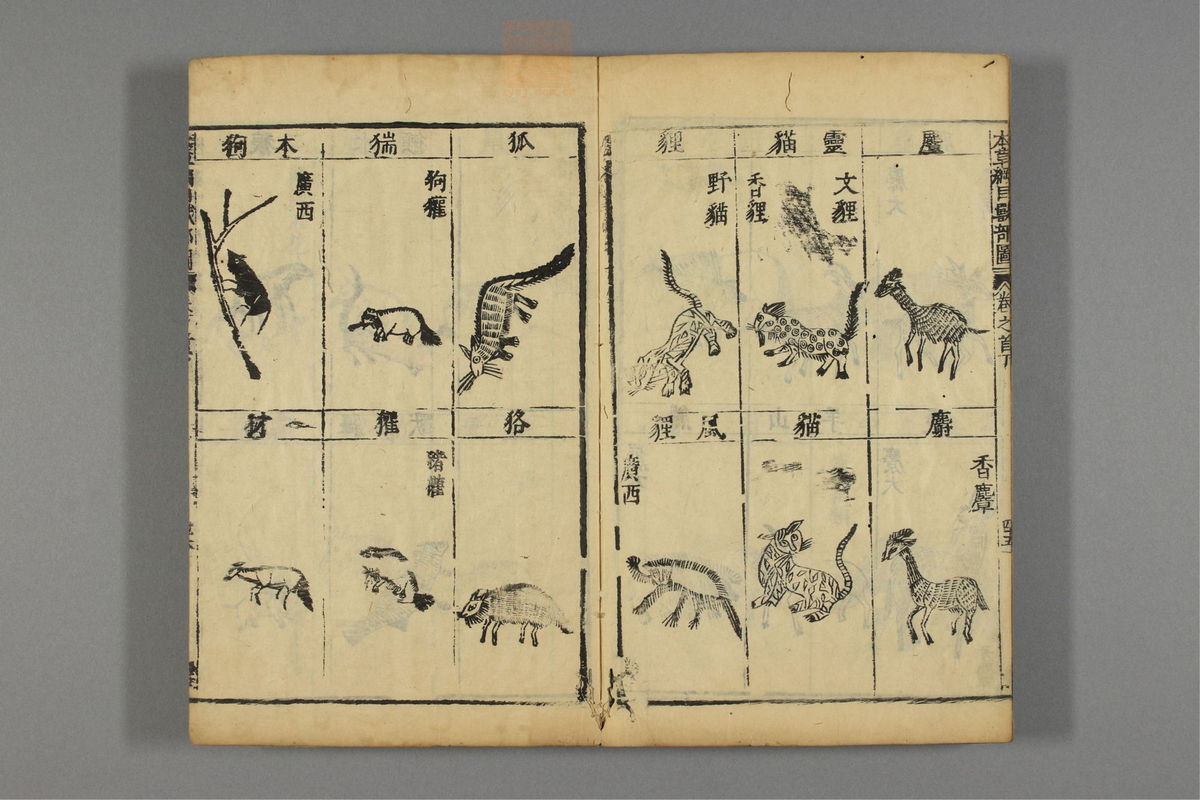 本草綱目獸部圖
卷之首下
四五
靈貓
文貍
香貍
貍
野貓
麝
香麞
貓
風貍
廣西
狐
猯
狗獾
木狗
廣西
狢
獾
豬獾
豺